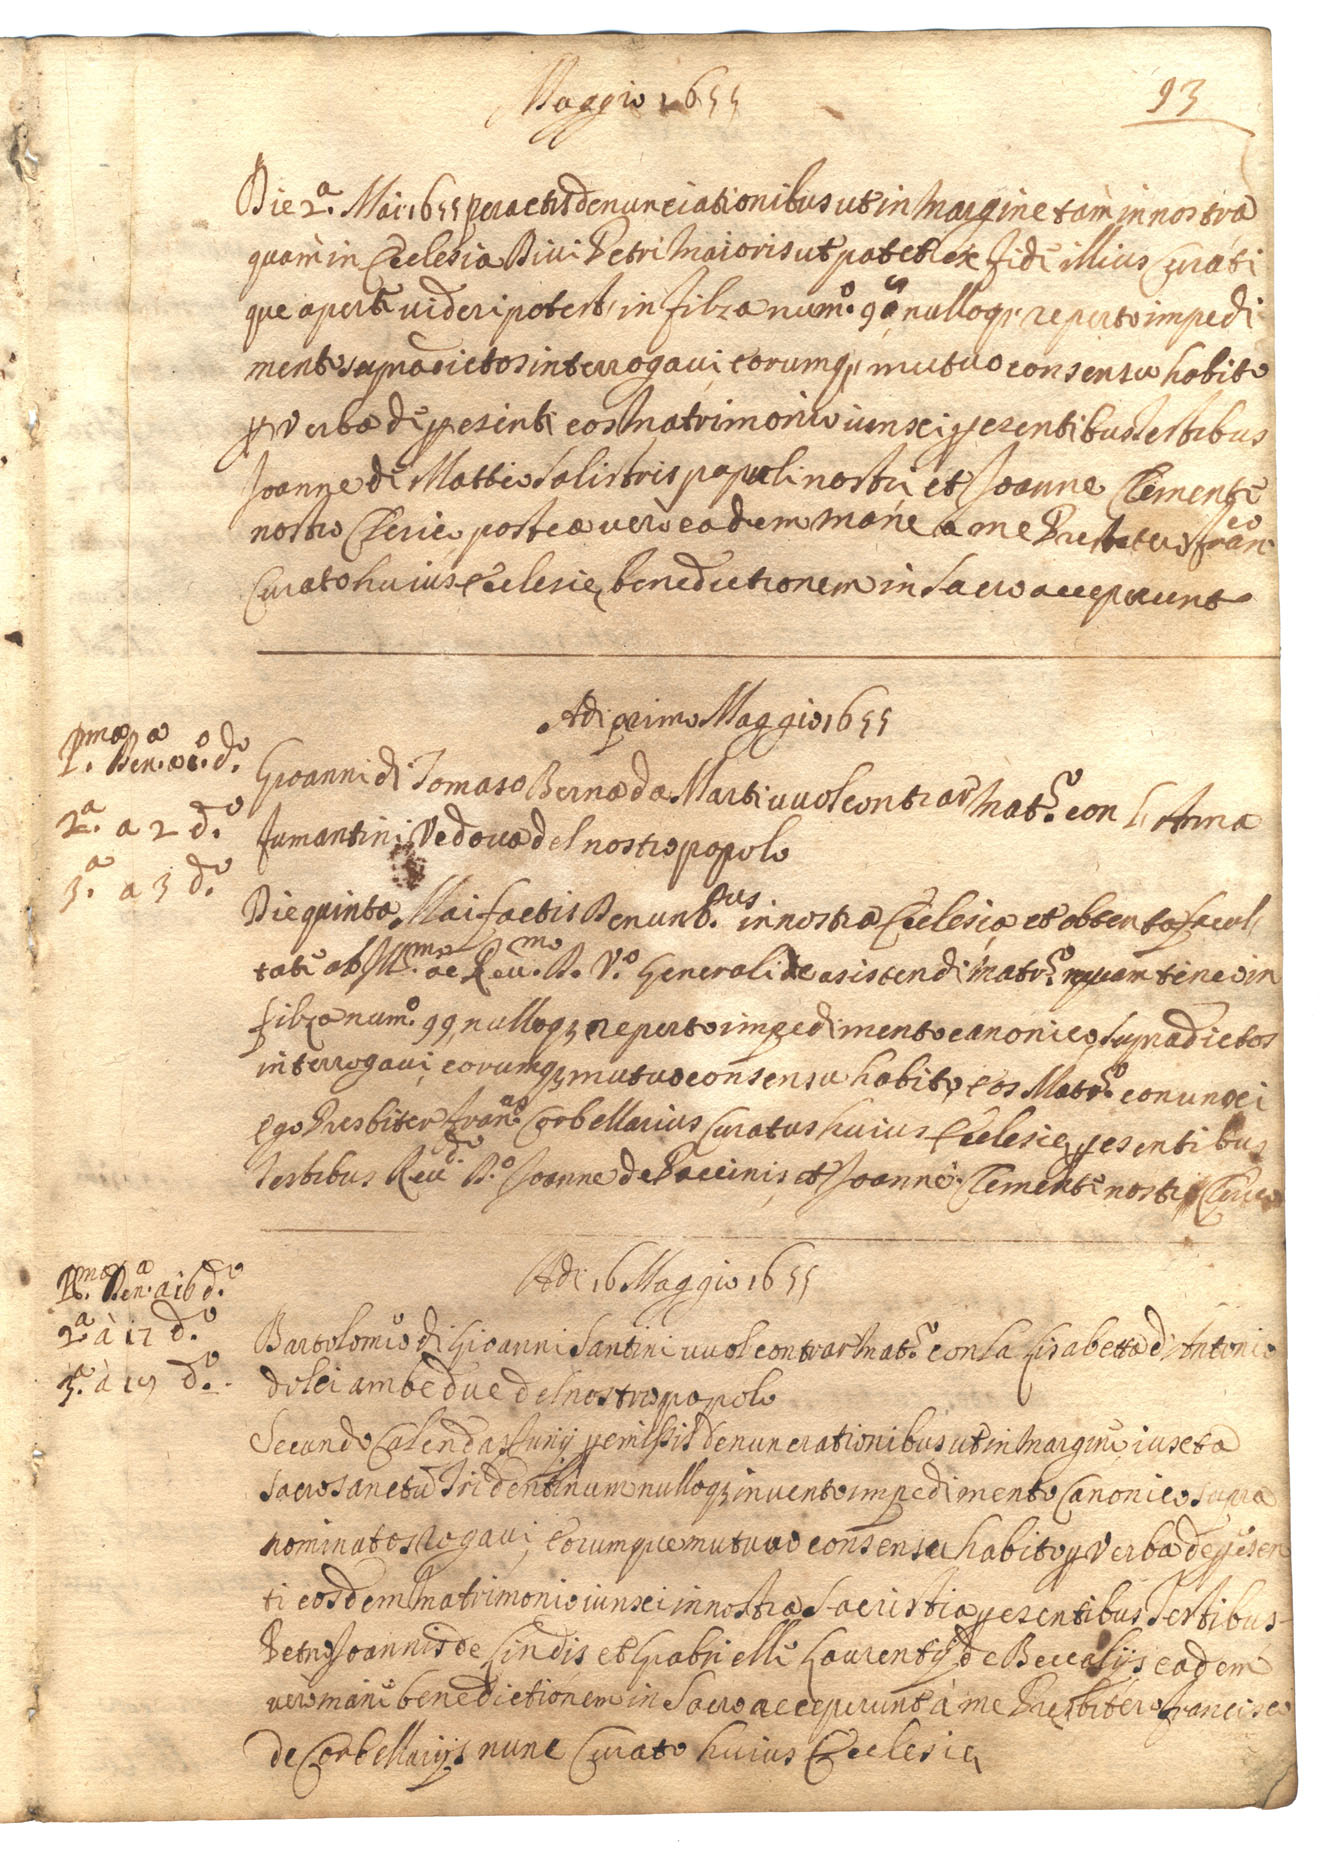 Maggio 1655
93
Die 2.a Mai 1655 peractis denunciationibus ut in margine tam in nostra
quam in Ecclesia Divi Petri Maioris ut patet ex fide illius Curati
que aperte videri potest in filza num.o 98 nulloq; reperto impedi
mento supradictos interrogavi eorumq; mutuo consensu habito
p verba de p̃senti eos Matrimonio iunxi p̃sentibus testibus
Joanne di Matteo Salistris populi nostri et Joanne Clemente
nostro Clerico postea vero eadem mane a me Presbitero Fran.co
Curato huius Ecclesie benedictionem in Sacro acceperunt
Adi primo Maggio 1655
P.ma Den.a a 1.o d.o
2.a a 2 d.o
3.a a 3 d.o
Gioanni di Tomaso Berna da Marti vuol contrar Mat.o con L' Anna
Fumantini Vedova del nostro popolo
Die quinta Mai factis Denunt.bus in nostra Ecclesia et obtenta facul
tate ab Ill.mo ac Rev.mo D. V.o Generali de asistendi Matr.o quam teneo in
filza num.o 99, nulloq; reperto impedimento canonico, supradictos
interrogavi, eorumq; mutuo consensu habito, eos Matr.o coniunxi
ego Presbiter Fran.cus Corbellarius Curatus huius Ecclesie, p̃sentibus
testibus Rev.do D.o Joanne de Paccinis, et Joanne Clemente nostro Clerico
Adi 16 Maggio 1655
P.ma Den.a a 16 d.o
2.a à 17 d.o
3.a à 19 d.o
Bartolomeo di Gioanni Santini vuol contrar Mat.o con la Lisabetta d'Antonio
dolci ambedue del nostro popolo
Secundo Calendas Junij p̃missis denunciationibus ut in margine iuxta
sacrosanctũ Tridentinum nulloq; invento impedimento Canonico supra
nominatos rogavi, eorumque mutuo consensu habito p verba de p̃sen
ti eosdem Matrimonio iunxi in nostra Sacristia p̃sentibus testibus
Petro Joannis de Lindis et Gabrielle Laurentij de Beccalijs eadem
vero mane benedictionem in Sacro acceperunt à me Presbitero Francisco
de Corbellarijs nunc Curato huius Ecclesie